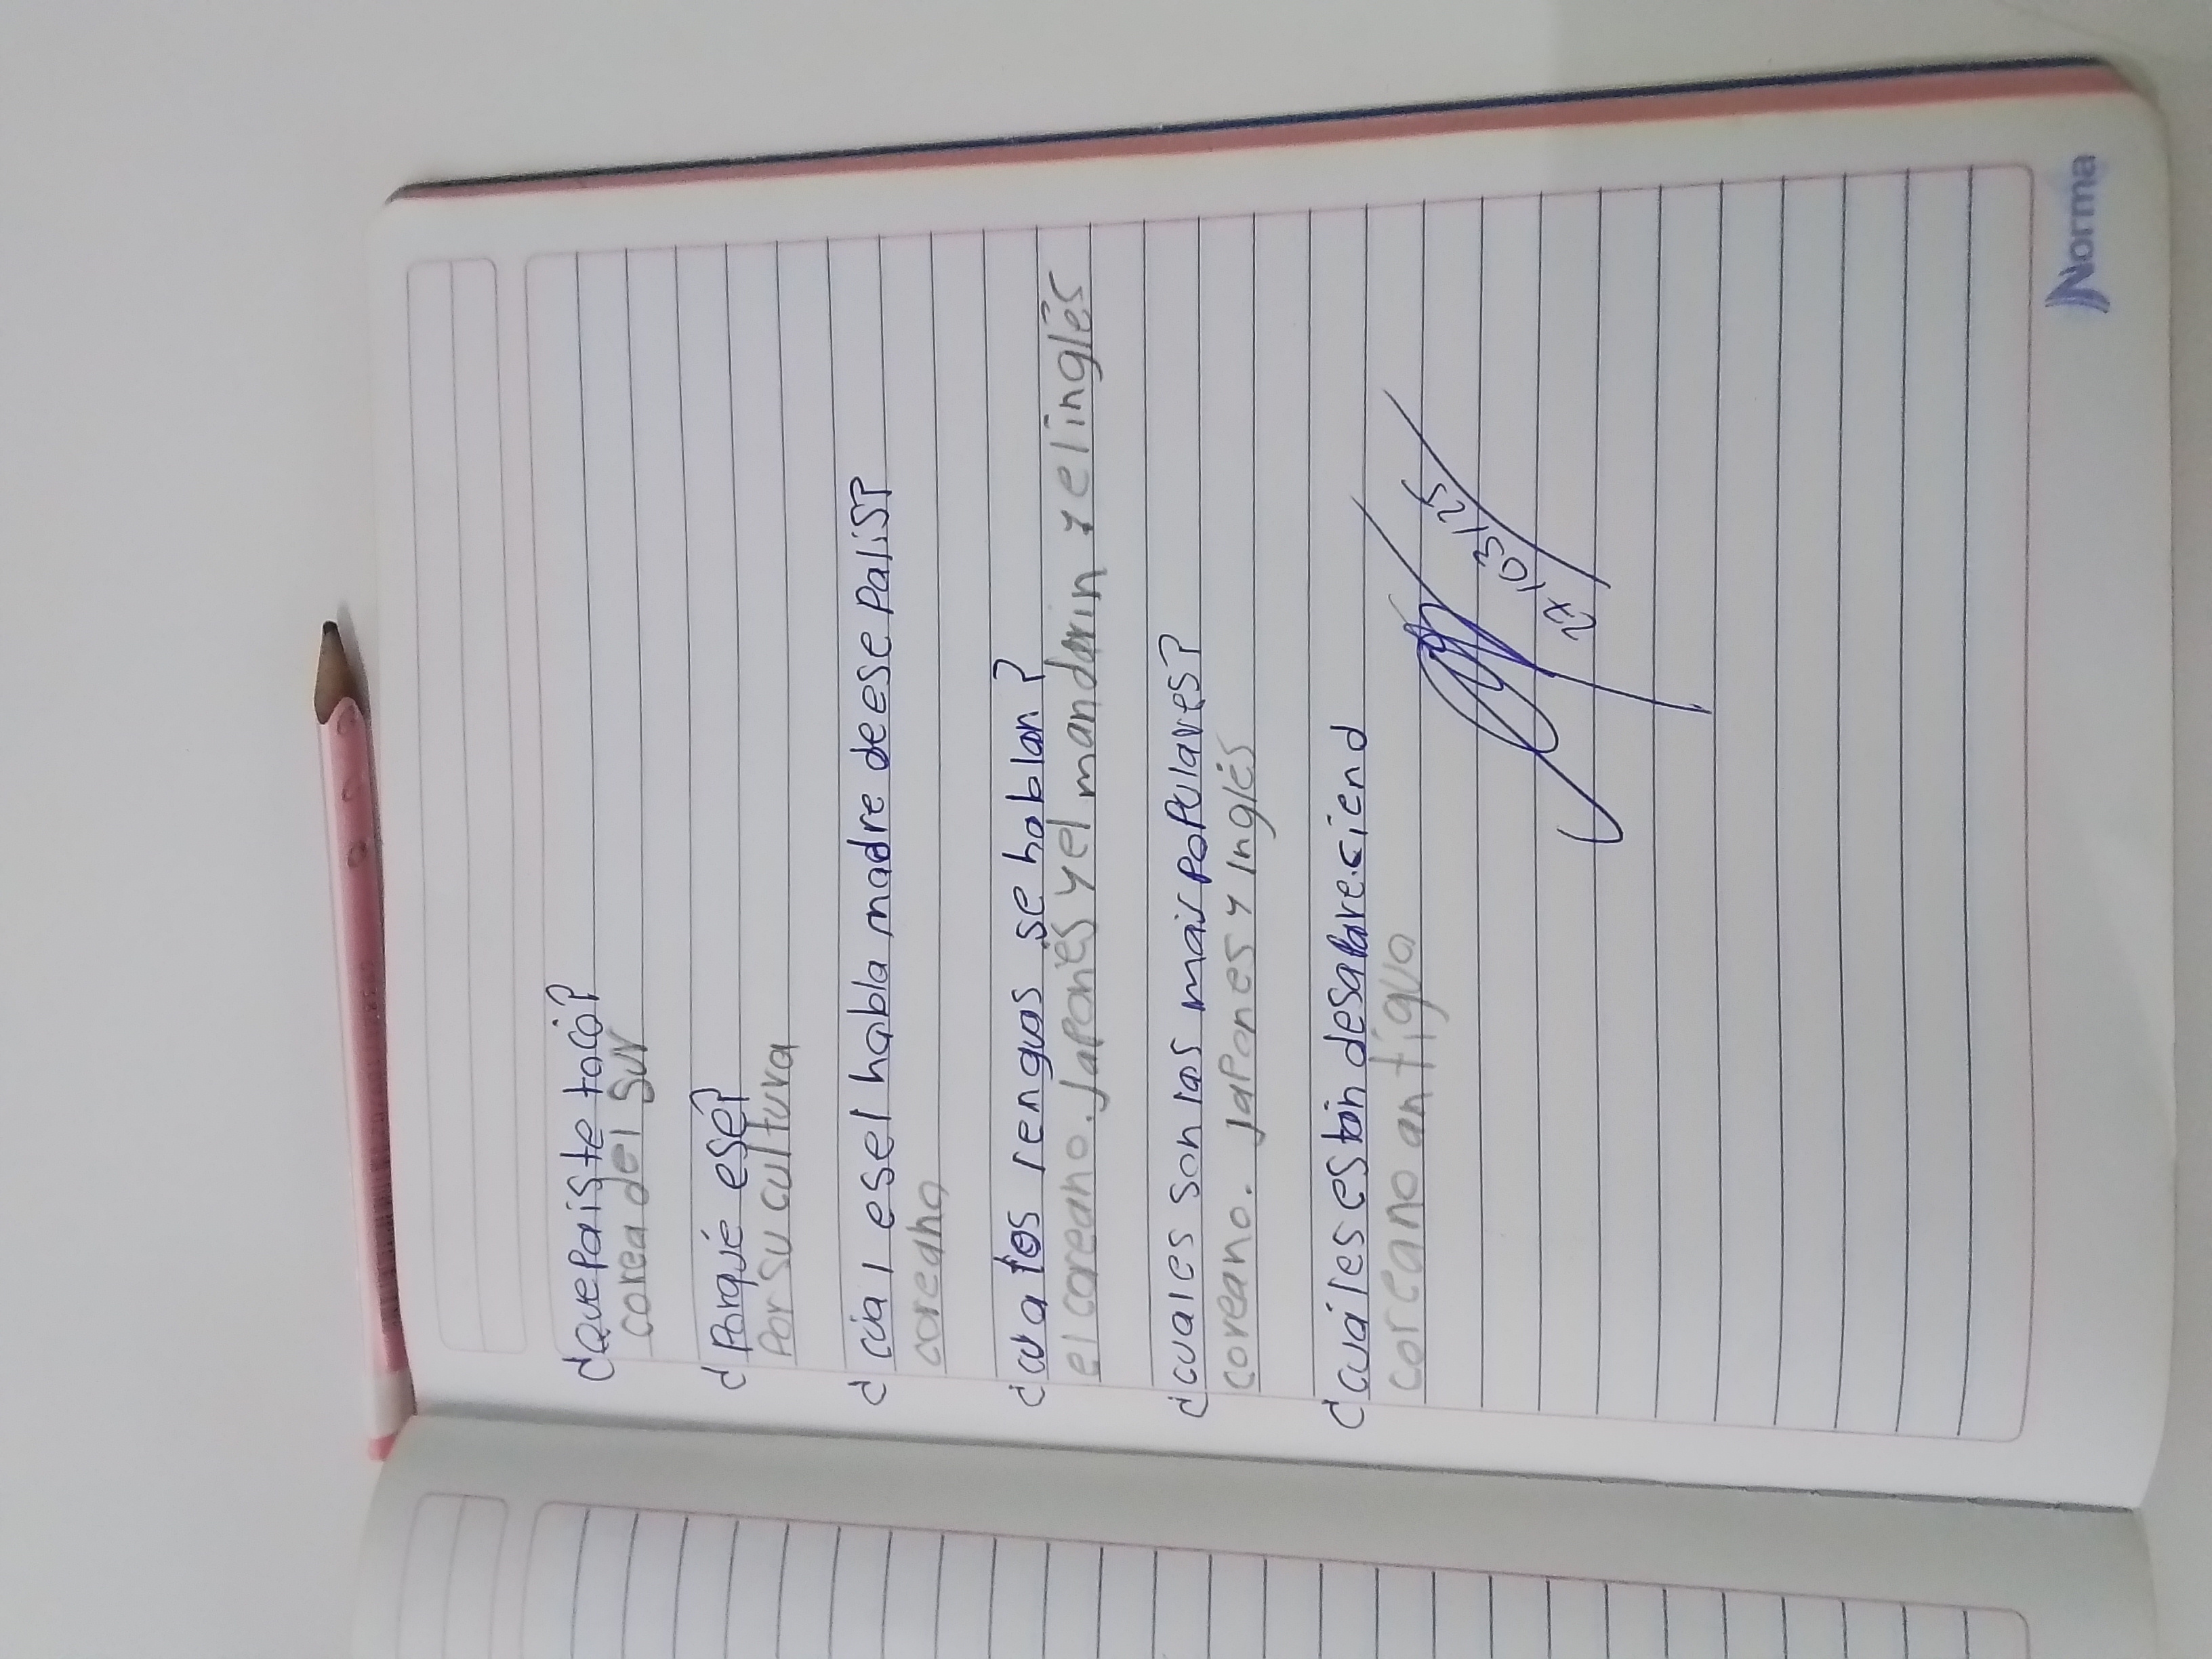 ¿Que País te tocó?
corea del sur
¿Porqué ese?
Por su cultura
¿cúal es el habla madre de ese País?
coreano
¿cuatos lenguas se hablan?
el coreano. Japonés y el mandarin y el inglés
¿cuales son las mais populares?
coreano. Japones y Inglés
¿cuáles están desapareciend
coreano antiguo
27/03/25
Norma